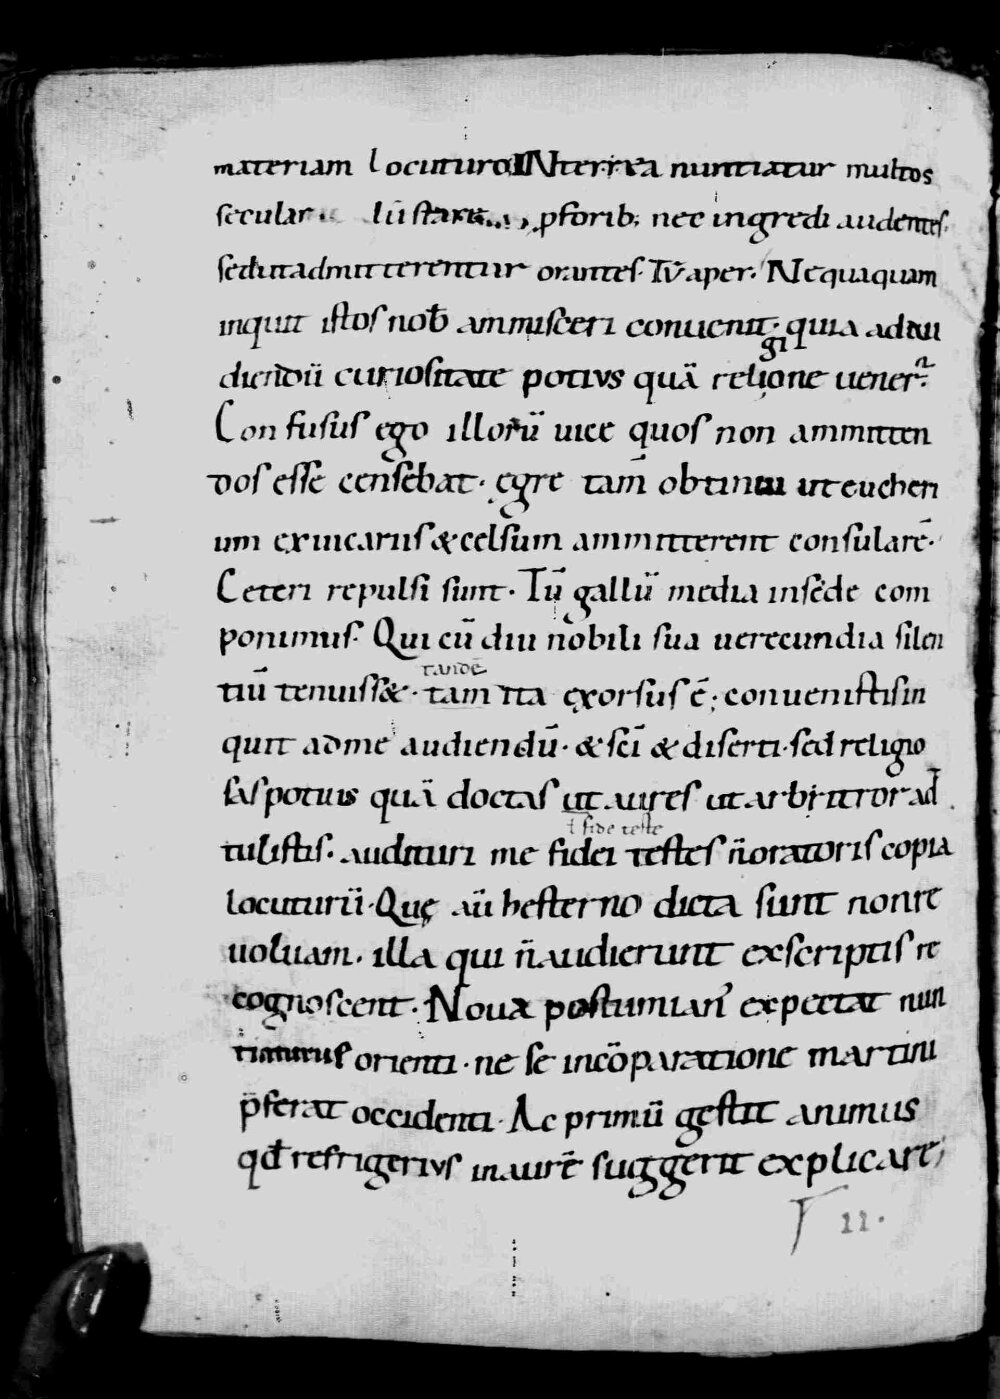 materiam locuturo. INterea nuntiatur multos
secular lū stare p̄forib; nec ingredi audentes.
sedutadmitterentur orantes. Tū aper. Nequaquam
inquit istos nob̄ ammisceri conuenit. quia adau
diendū curiositate potius quā religione uener̄.
Confusus ego illorū uice quos non ammitten
dos esse censebat. ęgre tam̄ obtinui ut eucheri
um exuicariis & celsum ammitterent consularē.
Ceteri repulsi sunt. Tū gallū media insede com
ponimus. Qui cū diu nobili sua uerecundia silen
tiū tenuiss&. tam ita exorsus ē; conuenistis in
tandē
quit adme audiendū. & sc̄i & diserti. sed religio
sas potius quā doctas ut aures ut arbitror ad
tulistis. audituri me fidei testes n̄ oratoris copia
ł fide teste
locuturū. Quę aū hesterno dicta sunt non re
uoluam. illa qui n̄ audierunt exscriptis re
cognoscent. Noua postumian' expectat nun
tiaturus orienti. ne se incōparatione martini
p̄ferat occidenti. Ac primū gestit animus
qd̄ refrigerius inaurē suggerit explicare;
11.